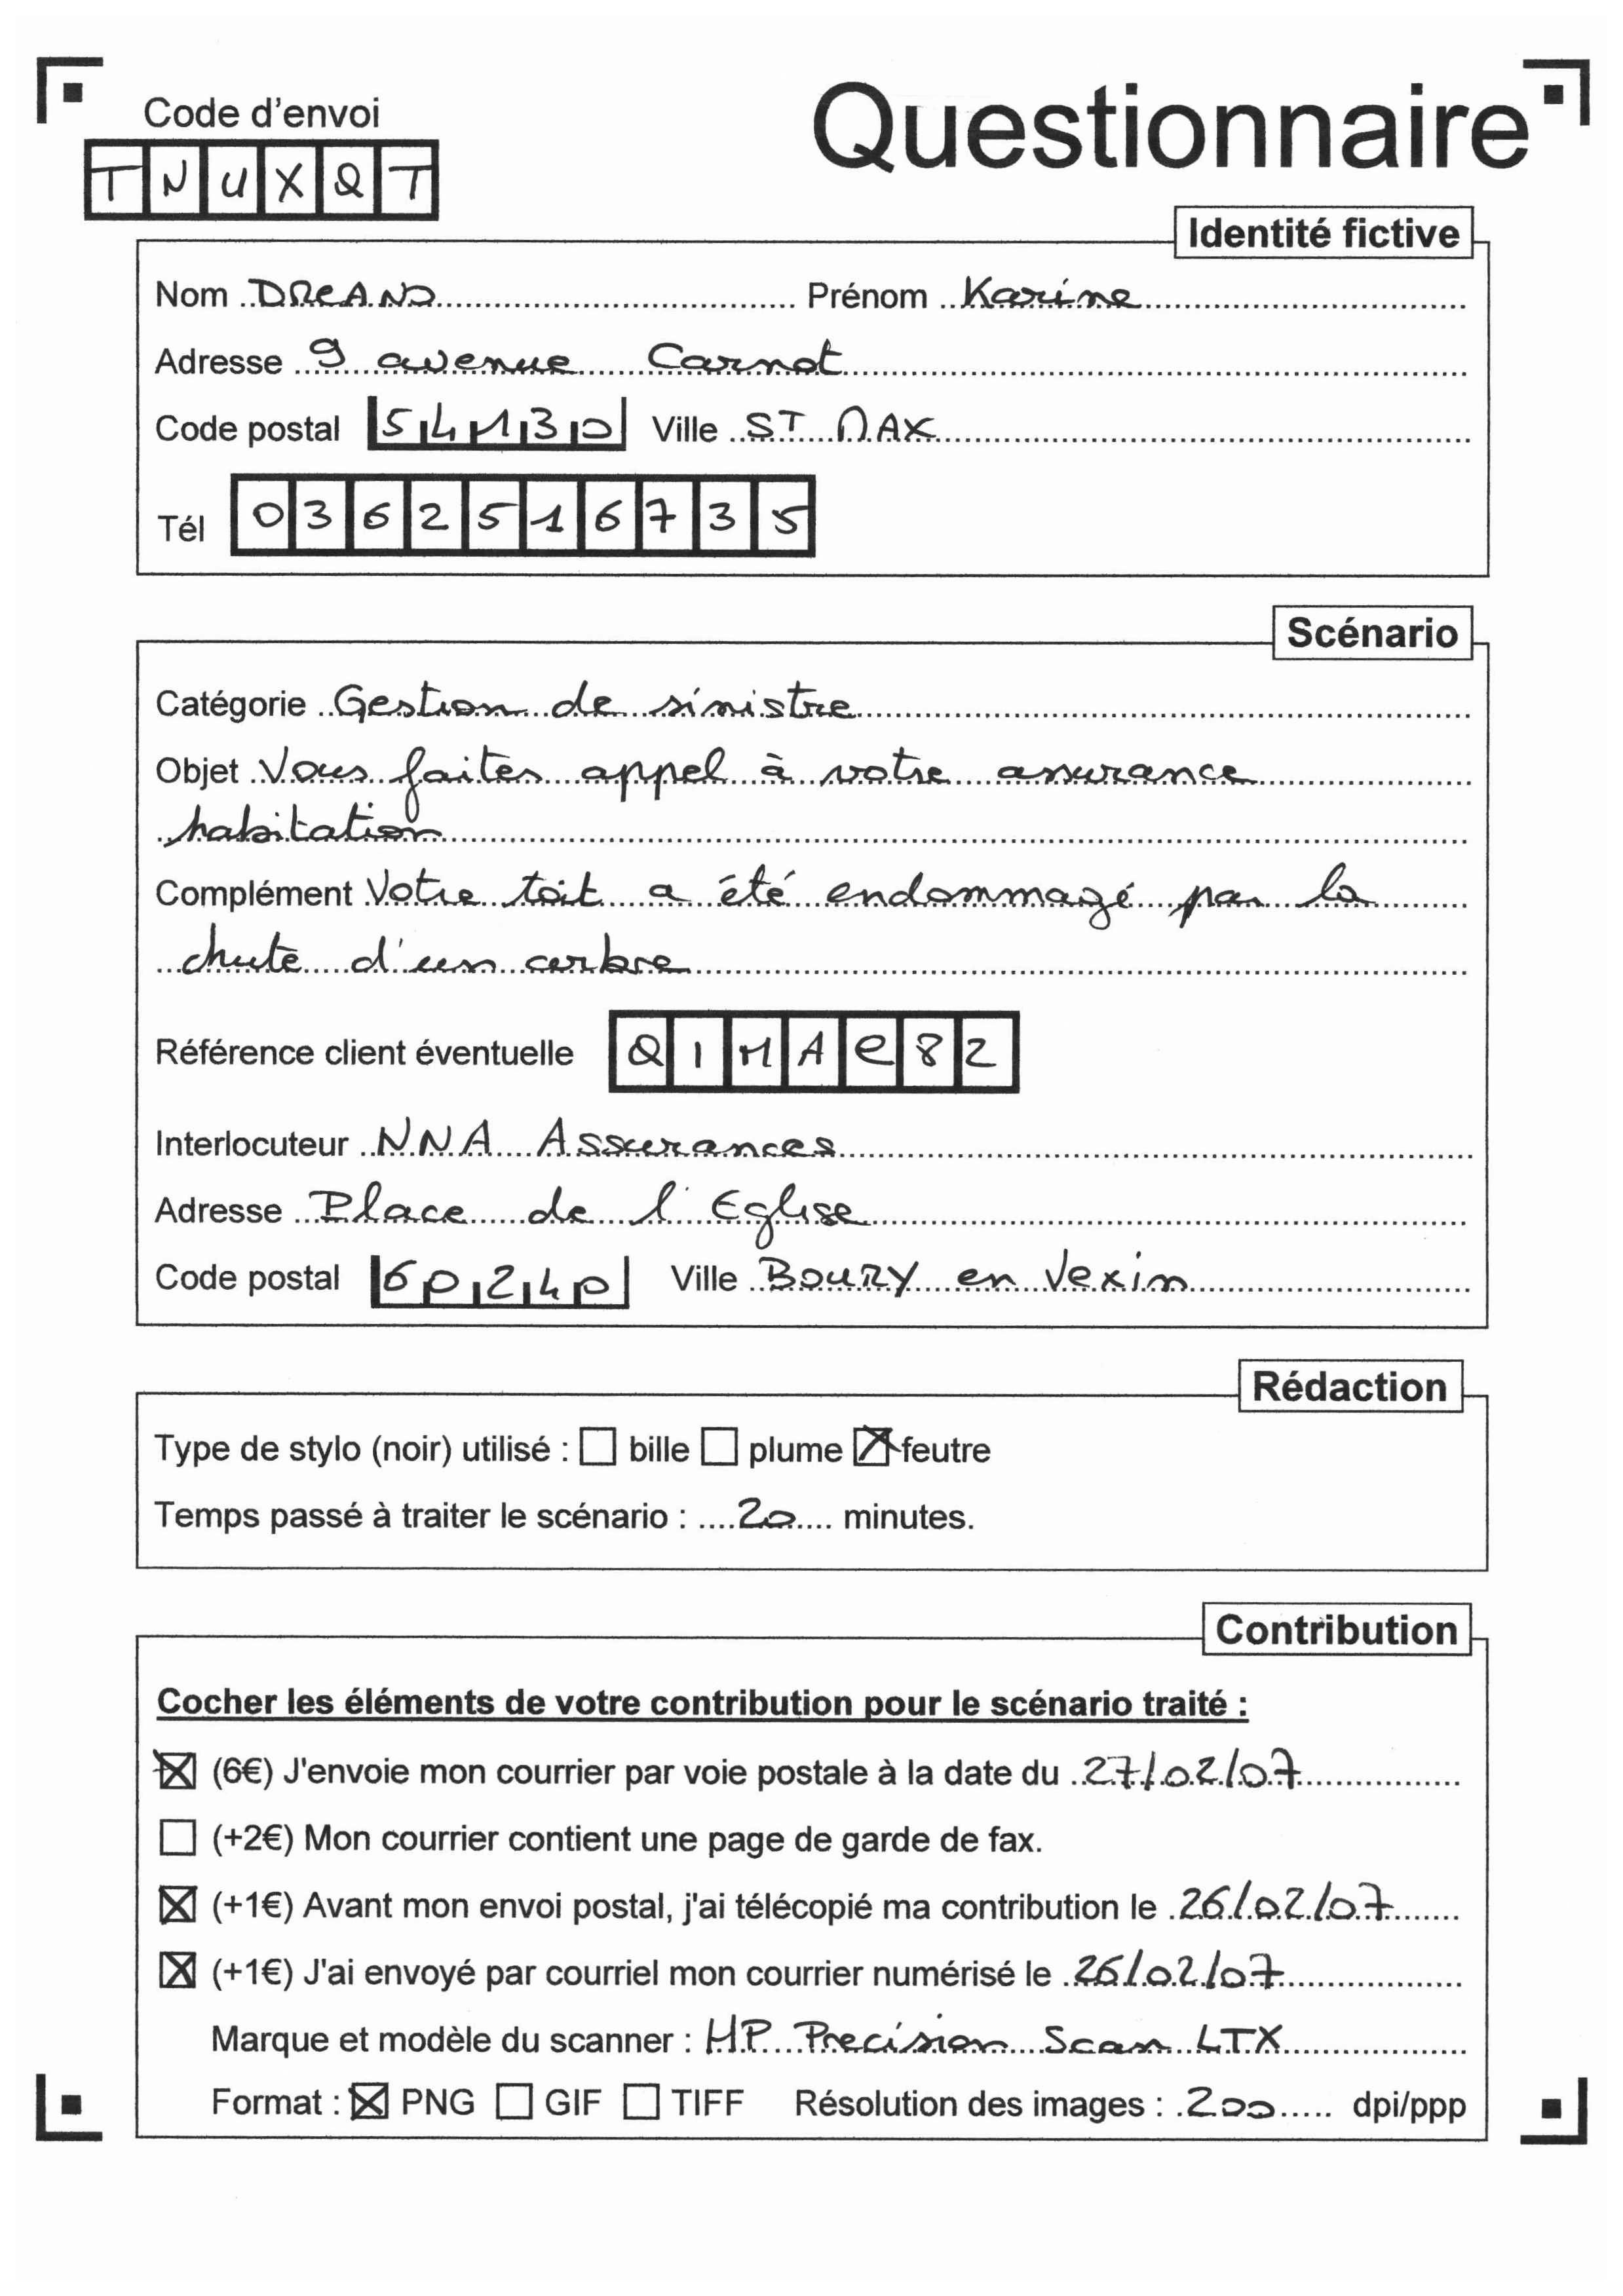 Code d'envoi
Questionnaire
TNUXQT
Identité fictive
Nom DREAND Prénom Karine
Adresse 9 avenue Carnot
Code postal 54130 Ville ST MAX
Tél 0362516735
Scénario
Catégorie Gestion de sinistre
Objet Vous faites appel à votre assurance
habitation
Complément Votre toit a été endommagé par la
chute d'un arbre
Référence client éventuelle QIMAE82
Interlocuteur NNA Assurances
Adresse Place de l'Eglise
Code postal 60240 Ville BOURY en Vexin
Rédaction
Type de stylo (noir) utilisé : bille plume feutre
Temps passé à traiter le scénario : 20 minutes.
Contribution
Cocher les éléments de votre contribution pour le scénario traité :
(6€) J'envoie mon courrier par voie postale à la date du 27/02/07
(+2€) Mon courrier contient une page de garde de fax.
(+1€) Avant mon envoi postal, j'ai télécopié ma contribution le 26/02/07
(+1€) J'ai envoyé par courriel mon courrier numérisé le 26/02/07
Marque et modèle du scanner : HP Precision Scan LTX
Format : PNG GIF TIFF Résolution des images : 200 dpi/ppp